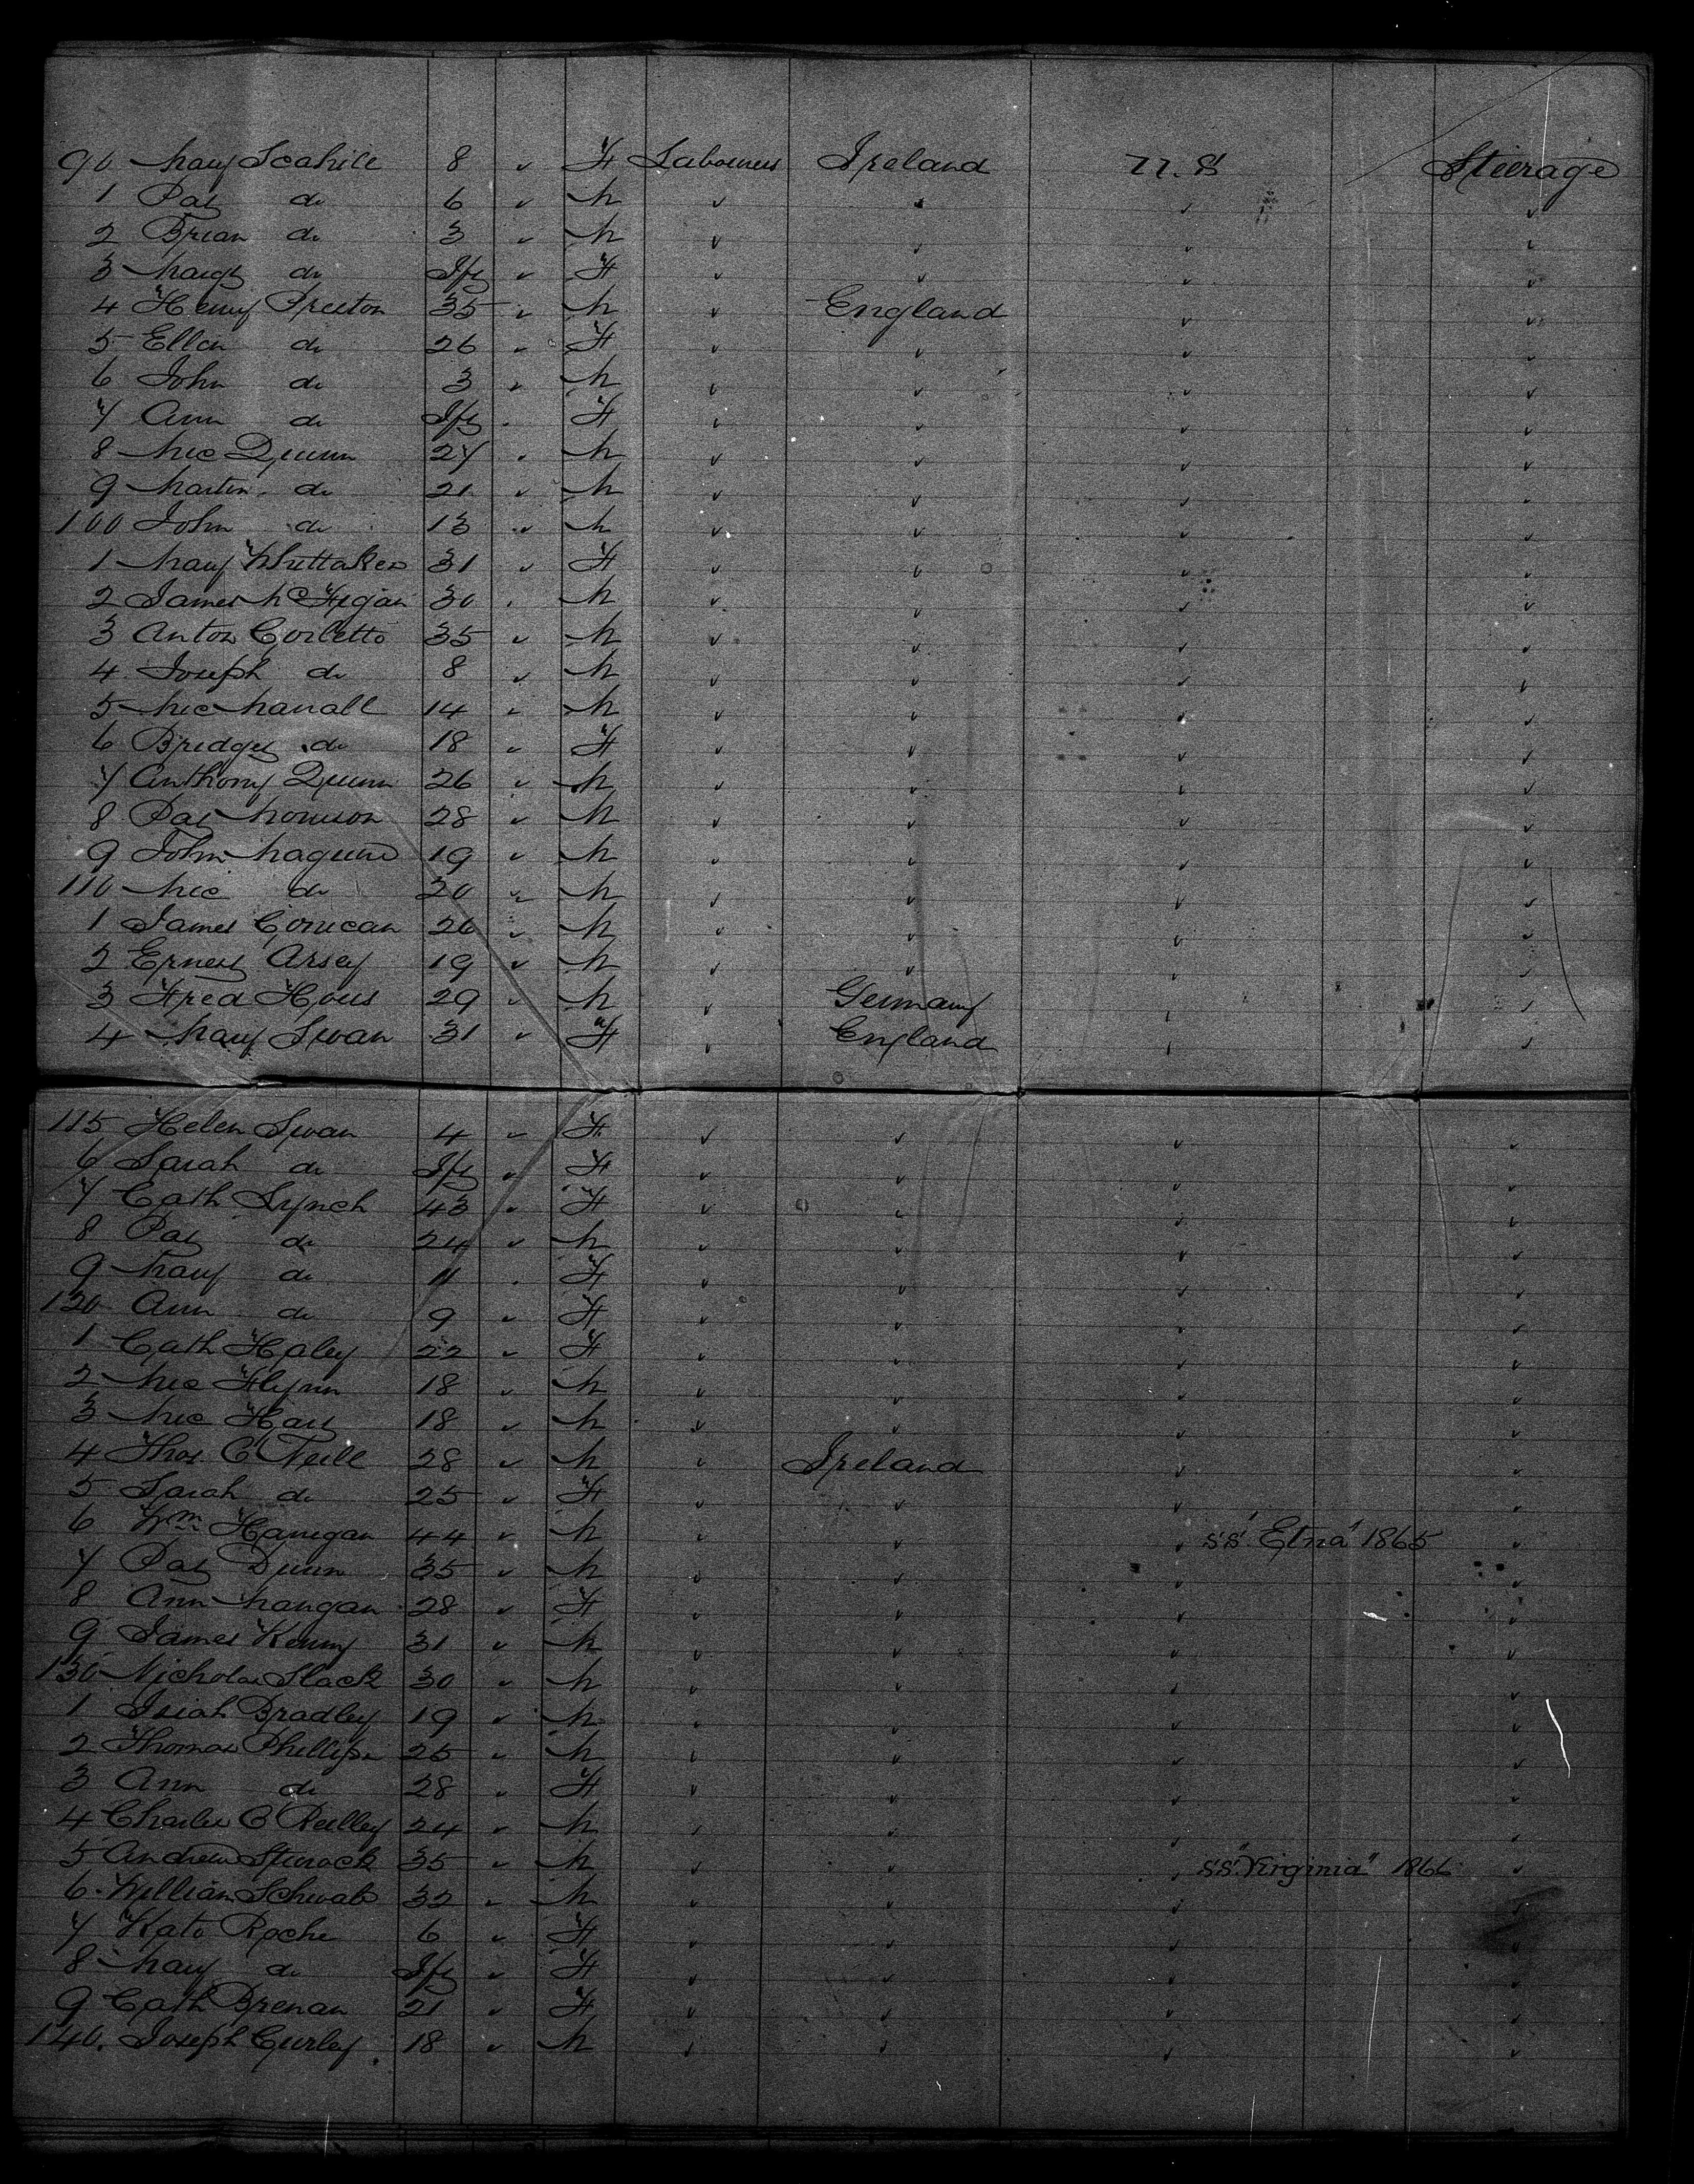 90 Mary Scahill 8 " F Labourers Ireland U.S Steerage
1 Pat do 6 " M " " " "
2 Brian do 3 " M " " " "
3 Margt do Inft " F " " " "
4 Henry Preeton 35 " M " England " "
5 Ellen do 26 " F " " " "
6 John do 3 " M " " " "
7 Ann do Inft " F " " " "
8 Mic Quinn 27 " M " " " "
9 Martin do 21 " M " " " "
100 John do 13 " M " " " "
1 Mary Whittaker 31 " F " " " "
2 James McFegan 30 " M " " " "
3 Anton Corletto 35 " M " " " "
4 Joseph do 8 " M " " " "
5 Mic Manall 14 " M " " " "
6 Bridget do 18 " F " " " "
7 Anthony Quinn 26 " M " " " "
8 Pat Morrison 28 " M " " " "
9 John Maguire 19 " M " " " "
110 Mic do 20 " M " " " "
1 James Corrican 26 " M " " " "
2 Ernest Arsey 19 " M " " " "
3 Fred Hous 29 " M " Germany " "
4 Mary Swan 31 " F " England " "
115 Helen Swan 4 " F " " " "
6 Sarah do Inft " F " " " "
7 Cath Lynch 43 " F " " " "
8 Pat do 24 " M " " " "
9 Mary do 11 " F " " " "
120 Ann do 9 " F " " " "
1 Cath Haley 22 " F " " " "
2 Mic Flynn 18 " M " " " "
3 Mic Hart 18 " M " " " "
4 Thos. O'Neill 28 " M " Ireland " "
5 Sarah do 25 " F " " " "
6 Wm Hanigan 44 " M " " " S.S. "Etna" 1865 "
7 Pat Dunn 35 " M " " " "
8 Ann Mangan 28 " F " " " "
9 James Kenny 31 " M " " " "
130 Nicholas Slack 30 " M " " " "
1 Isiah Bradley 19 " M " " " "
2 Thomas Phillips 25 " M " " " "
3 Ann do 28 " F " " " "
4 Charles O Reilley 24 " M " " " "
5 Andrew Sturock 35 " M " " " S.S. "Virginia" 1866 "
6 William Schwab 32 " M " " " "
7 Kate Roche 6 " F " " " "
8 Mary do Inft " F " " " "
9 Cath Brenan 21 " F " " " "
140. Joseph Gurley 18 " M " " " "